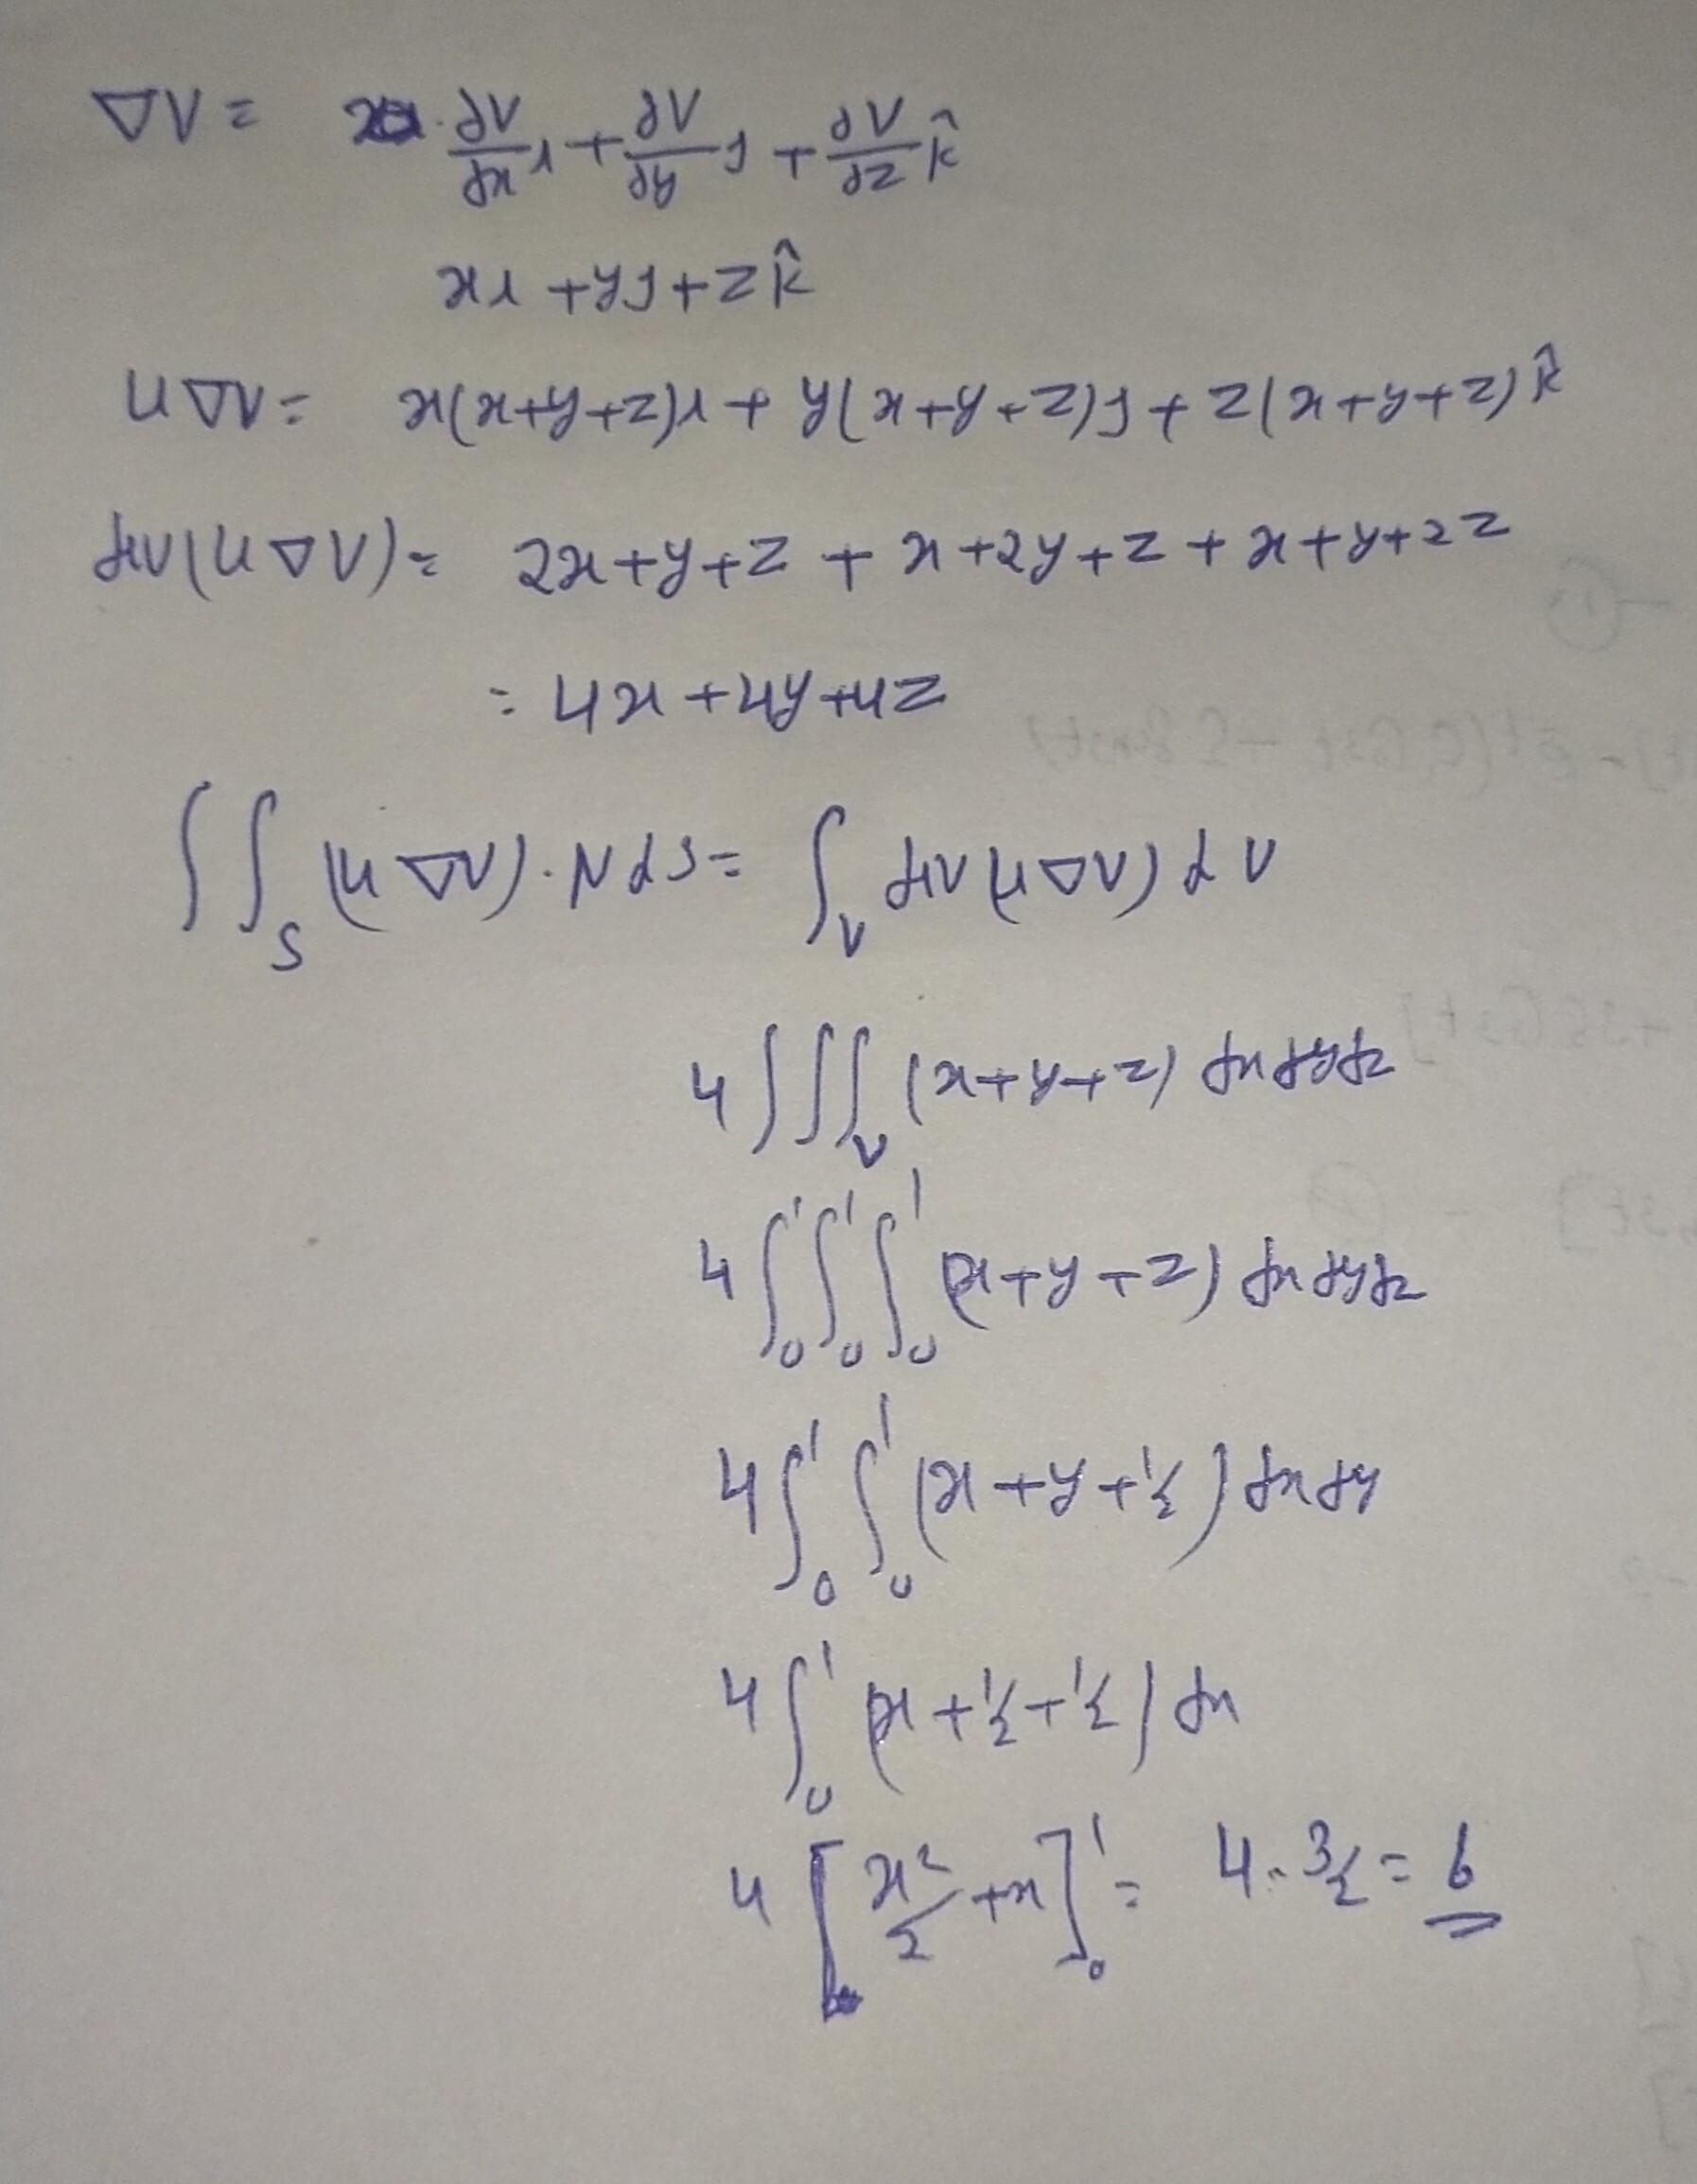 ∇V = ∂V/∂x i + ∂V/∂y j + ∂V/∂z k̂
xi + yj + zk̂
u∇V = x(x+y+z)i + y(x+y+z)j + z(x+y+z)k̂
div(u∇V) = 2x+y+z + x+2y+z + x+y+2z
= 4x+4y+4z
∫∫_S (u∇V)·N dS = ∫_V div(u∇V) dV
4∫∫∫_V (x+y+z) dx dy dz
4∫₀¹∫₀¹∫₀¹ (x+y+z) dx dy dz
4∫₀¹∫₀¹ (x+y+½) dx dy
4∫₀¹ (x+½+½) dx
4[x²/2 + x]₀¹ = 4·3/2 = 6